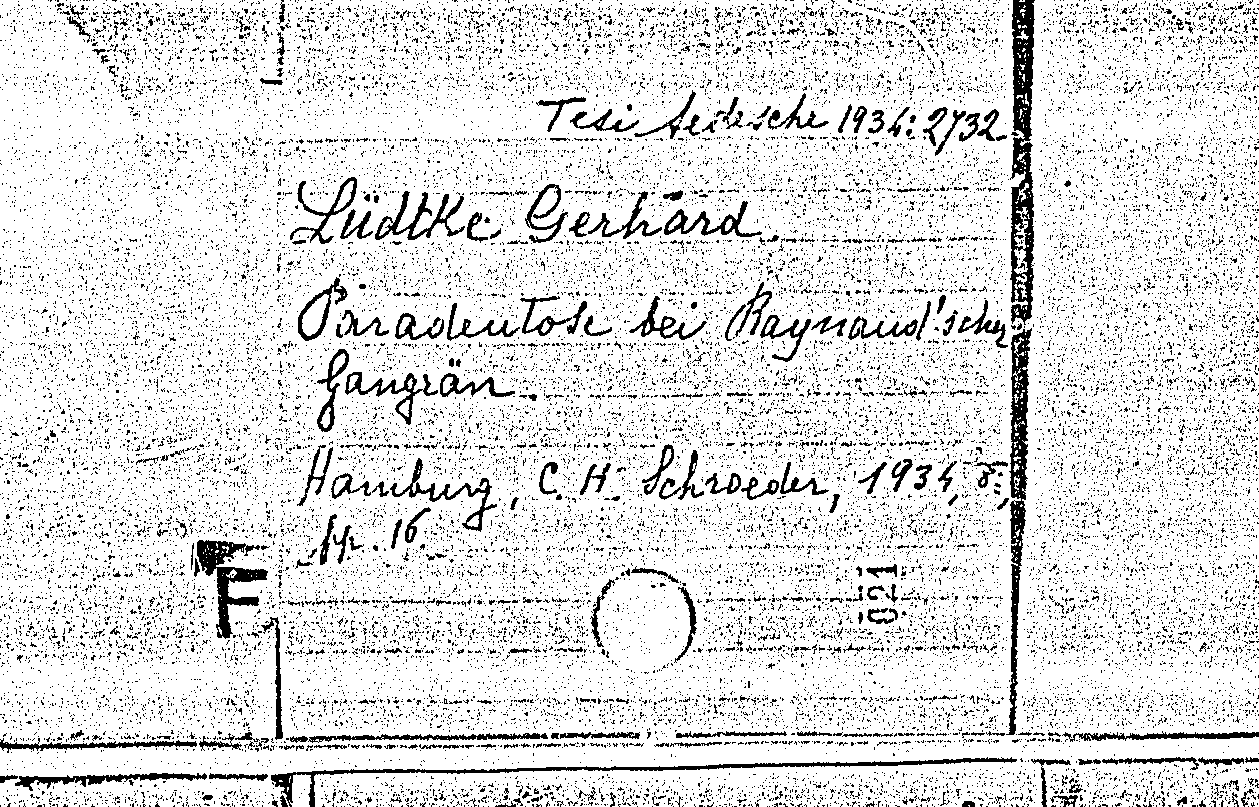 Tesi tedesche 1934: 2732
Lüdtke Gerhard.
Paradentose bei Raynaud'scher
Gangrän.
Hamburg, C. H. Schroeder, 1934, 8°.,
pp. 16
F
021